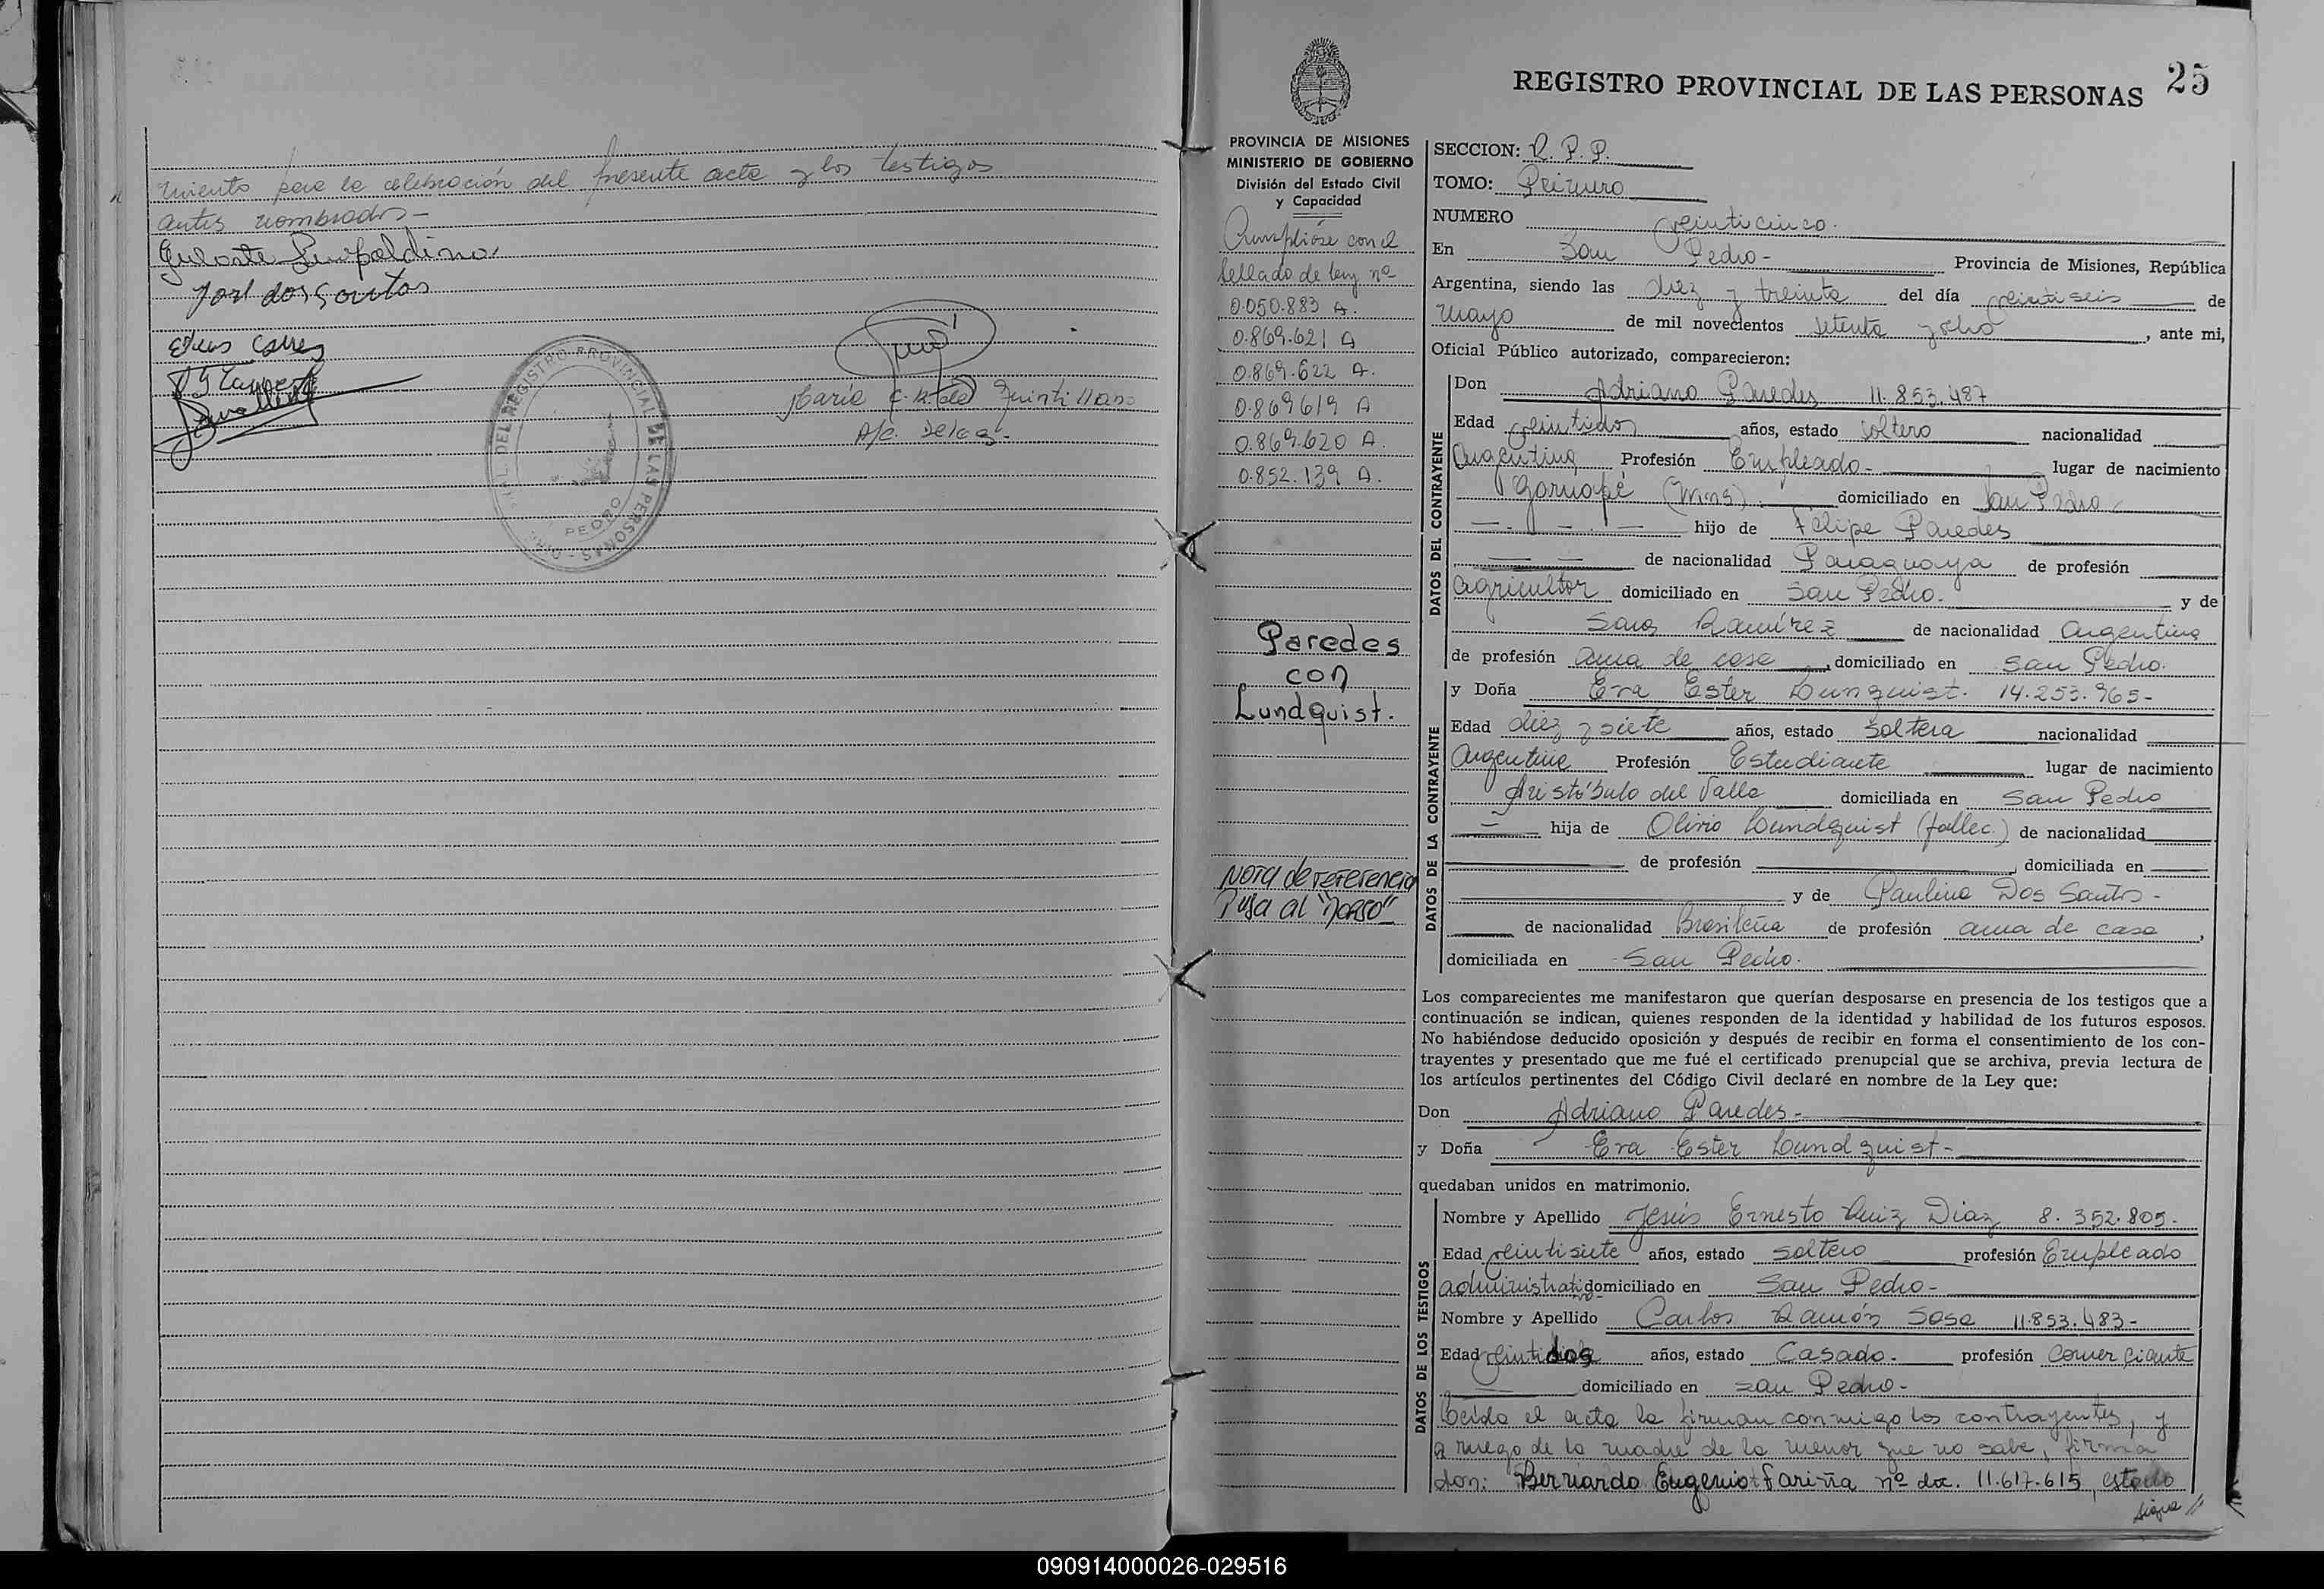 miento para la celebración del presente acta y los testigos
antes nombrados-
José dos Santos
REGISTRO PROVINCIAL DE LAS PERSONAS
PEDRO
María
Quintillano
25
REGISTRO PROVINCIAL DE LAS PERSONAS
PROVINCIA DE MISIONES
MINISTERIO DE GOBIERNO
División del Estado Civil
y Capacidad
Cumplióse con el
sellado de ley nº
0.050.883 A.
0.869.621 A
0.869.622 A.
0.869619 A
0.869.620 A.
0.852.139 A.
Paredes
con
Lundquist.
Nota de referencia
Pasa al "Dorso"
SECCION: R. P. P.
TOMO: Primero
NUMERO Veinticinco.
En San Pedro- Provincia de Misiones, República
Argentina, siendo las diez y treinta del día veintiseis de
mayo de mil novecientos setenta y ocho, ante mi,
Oficial Público autorizado, comparecieron:
DATOS DEL CONTRAYENTE
Don Adriano Paredes 11.853.487
Edad veintidos años, estado soltero nacionalidad
Argentina Profesión Empleado- lugar de nacimiento
Garuapé (Mnes). domiciliado en San Pedro
hijo de Felipe Paredes
de nacionalidad Paraguaya de profesión
agricultor domiciliado en San Pedro. y de
Sara Ramírez de nacionalidad argentina
de profesión ama de casa, domiciliado en San Pedro.
DATOS DE LA CONTRAYENTE
y Doña Eva Ester Lunquist. 14.253.965-
Edad diez y siete años, estado soltera nacionalidad
argentina Profesión Estudiante lugar de nacimiento
Aristóbulo del Valle domiciliada en San Pedro
hija de Olivio Lundquist (fallec.) de nacionalidad
de profesión , domiciliada en
y de Paulina Dos Santos-
de nacionalidad Brasileña de profesión ama de casa,
domiciliada en San Pedro.
Los comparecientes me manifestaron que querían desposarse en presencia de los testigos que a
continuación se indican, quienes responden de la identidad y habilidad de los futuros esposos.
No habiéndose deducido oposición y después de recibir en forma el consentimiento de los con-
trayentes y presentado que me fué el certificado prenupcial que se archiva, previa lectura de
los artículos pertinentes del Código Civil declaré en nombre de la Ley que:
Don Adriano Paredes-
y Doña Eva Ester Lundquist-
quedaban unidos en matrimonio.
DATOS DE LOS TESTIGOS
Nombre y Apellido Jesús Ernesto Ruiz Diaz 8.352.805-
Edad veintisiete años, estado soltero profesión Empleado
administrativo domiciliado en San Pedro-
Nombre y Apellido Carlos Ramón Sosa 11.853.483-
Edad veintidos años, estado Casado. profesión Comerciante
domiciliado en San Pedro-
Leída el acta la firman conmigo los contrayentes, y
a ruego de la madre de la menor que no sabe, firma
don: Bernardo Eugenio Fariña nº doc. 11.617.615, estado
sigue //
090914000026-029516